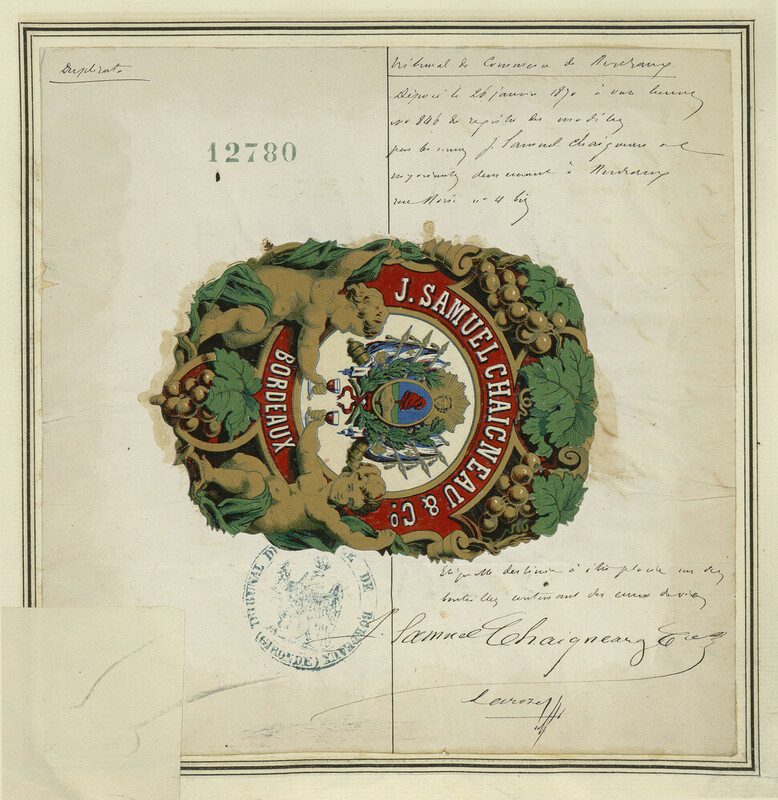 Duplicata
12780
Tribunal de Commerce de Bordeaux
Déposé le 26 janvier 1870 à
no 846 du registre des modèles
par les sieurs J. Samuel Chaigneau et C
négociants demeurant à Bordeaux
rue no 4 bis
J. SAMUEL CHAIGNEAU & Co.
BORDEAUX
TRIBUNAL DE BORDEAUX
(GIRONDE)
Etiquette destinée à être placée sur des
bouteilles contenant des eaux de vie
J. Samuel Chaigneau & Cie